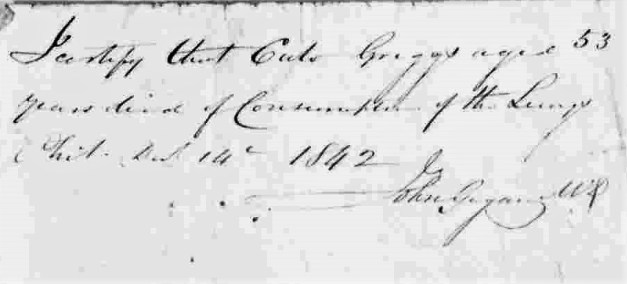 I certify that Cato Griggs aged 53
years died of Consumption of the Lungs
Phil. Dec 14th 1842
John M.D.